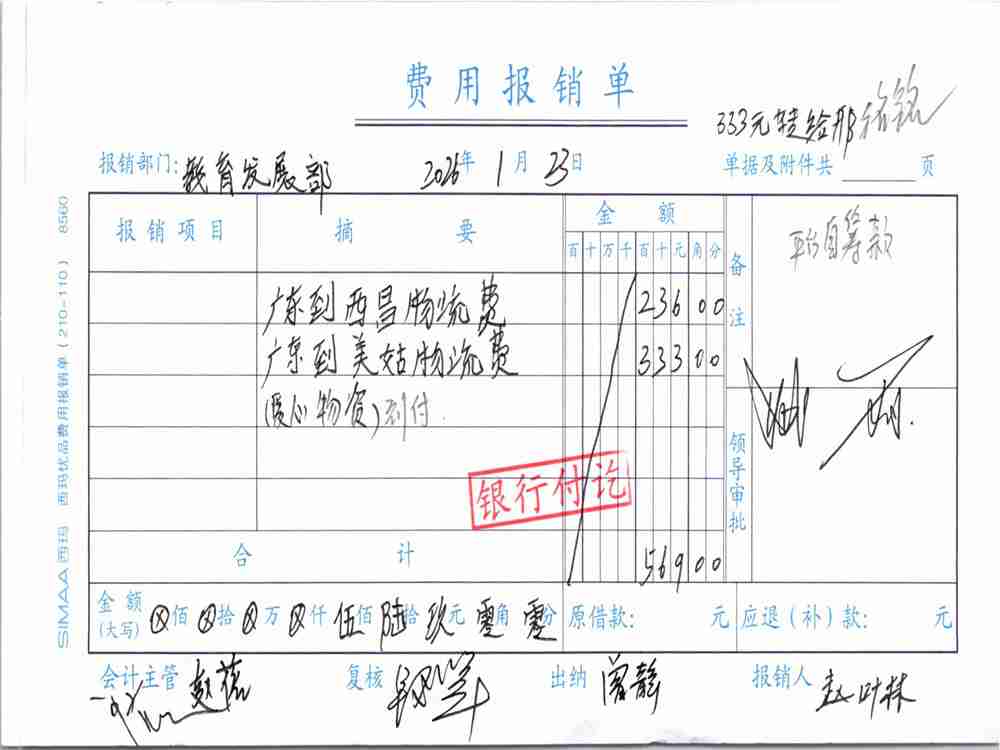 费用报销单
333元转给那
报销部门: 教育发展部 2026年 1月 23日 单据及附件共 页
报销项目 摘要 金额 备注 平台自筹款
百十万千百十元角分
广东到西昌物流费 236 00
广东到美姑物流费 333 00
(爱心物资)到付.
银行付讫
领导审批
合计 569 00
金额(大写) ⊗佰⊗拾⊗万⊗仟伍佰陆拾玖元零角零分 原借款: 元 应退(补)款: 元
会计主管 复核 出纳 曾静 报销人 赵叶林
SIMAA 西玛 西玛优品费用报销单(210-110) 8560